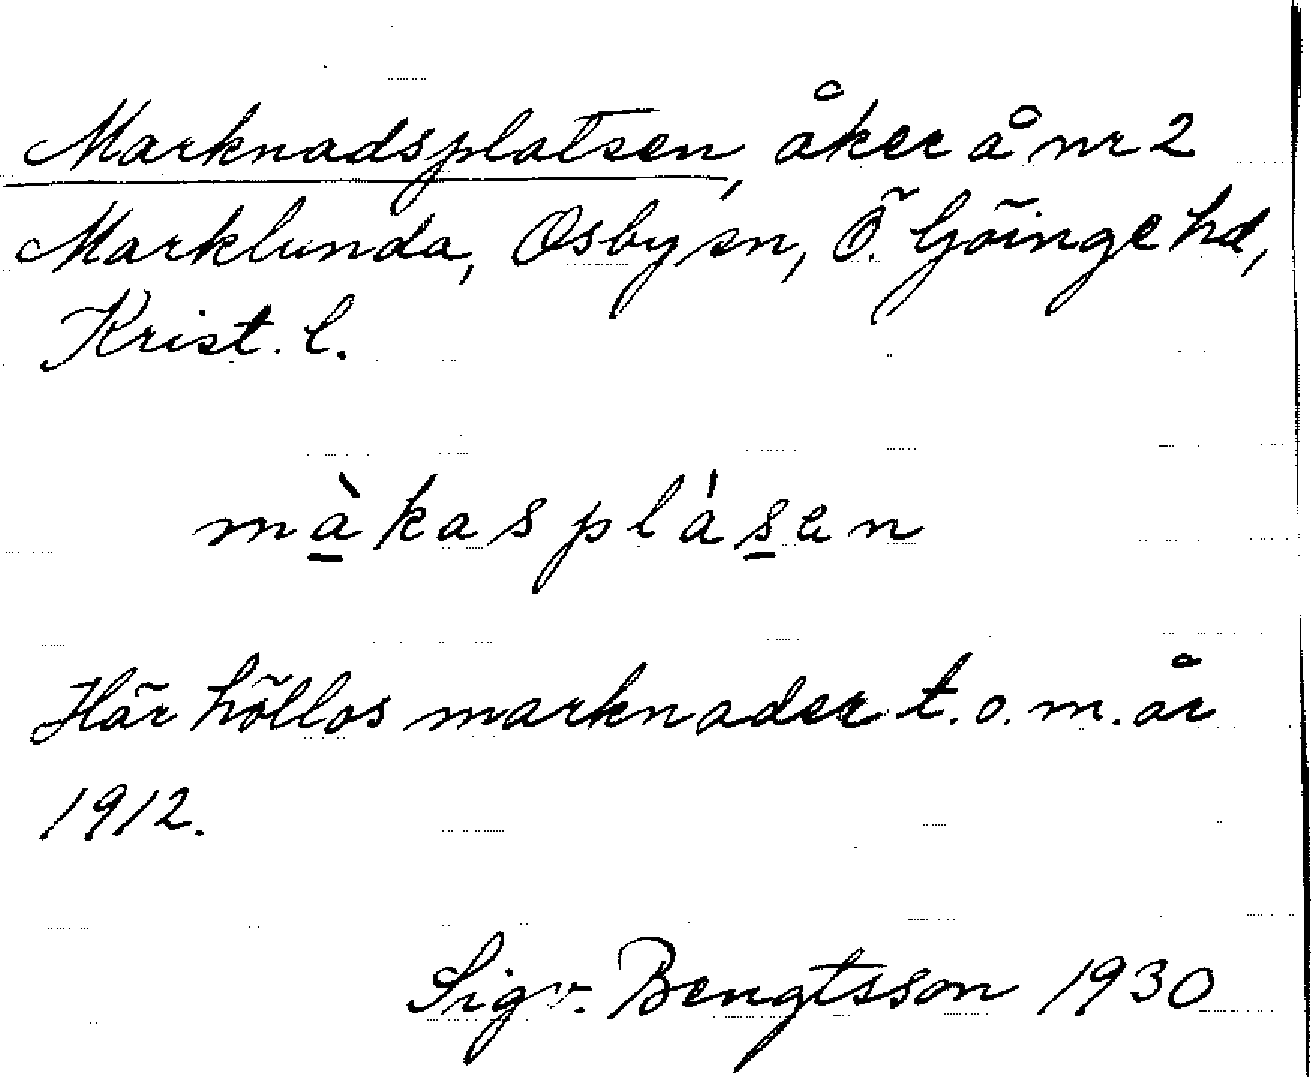 Marknadsplatsen, åker å nr 2
Marklunda, Osby sn, Ö. Göinge hd,
Krist. l.
màkasplásen
Här höllos marknader t.o.m. år
1912.
Sigv. Bengtsson 1930